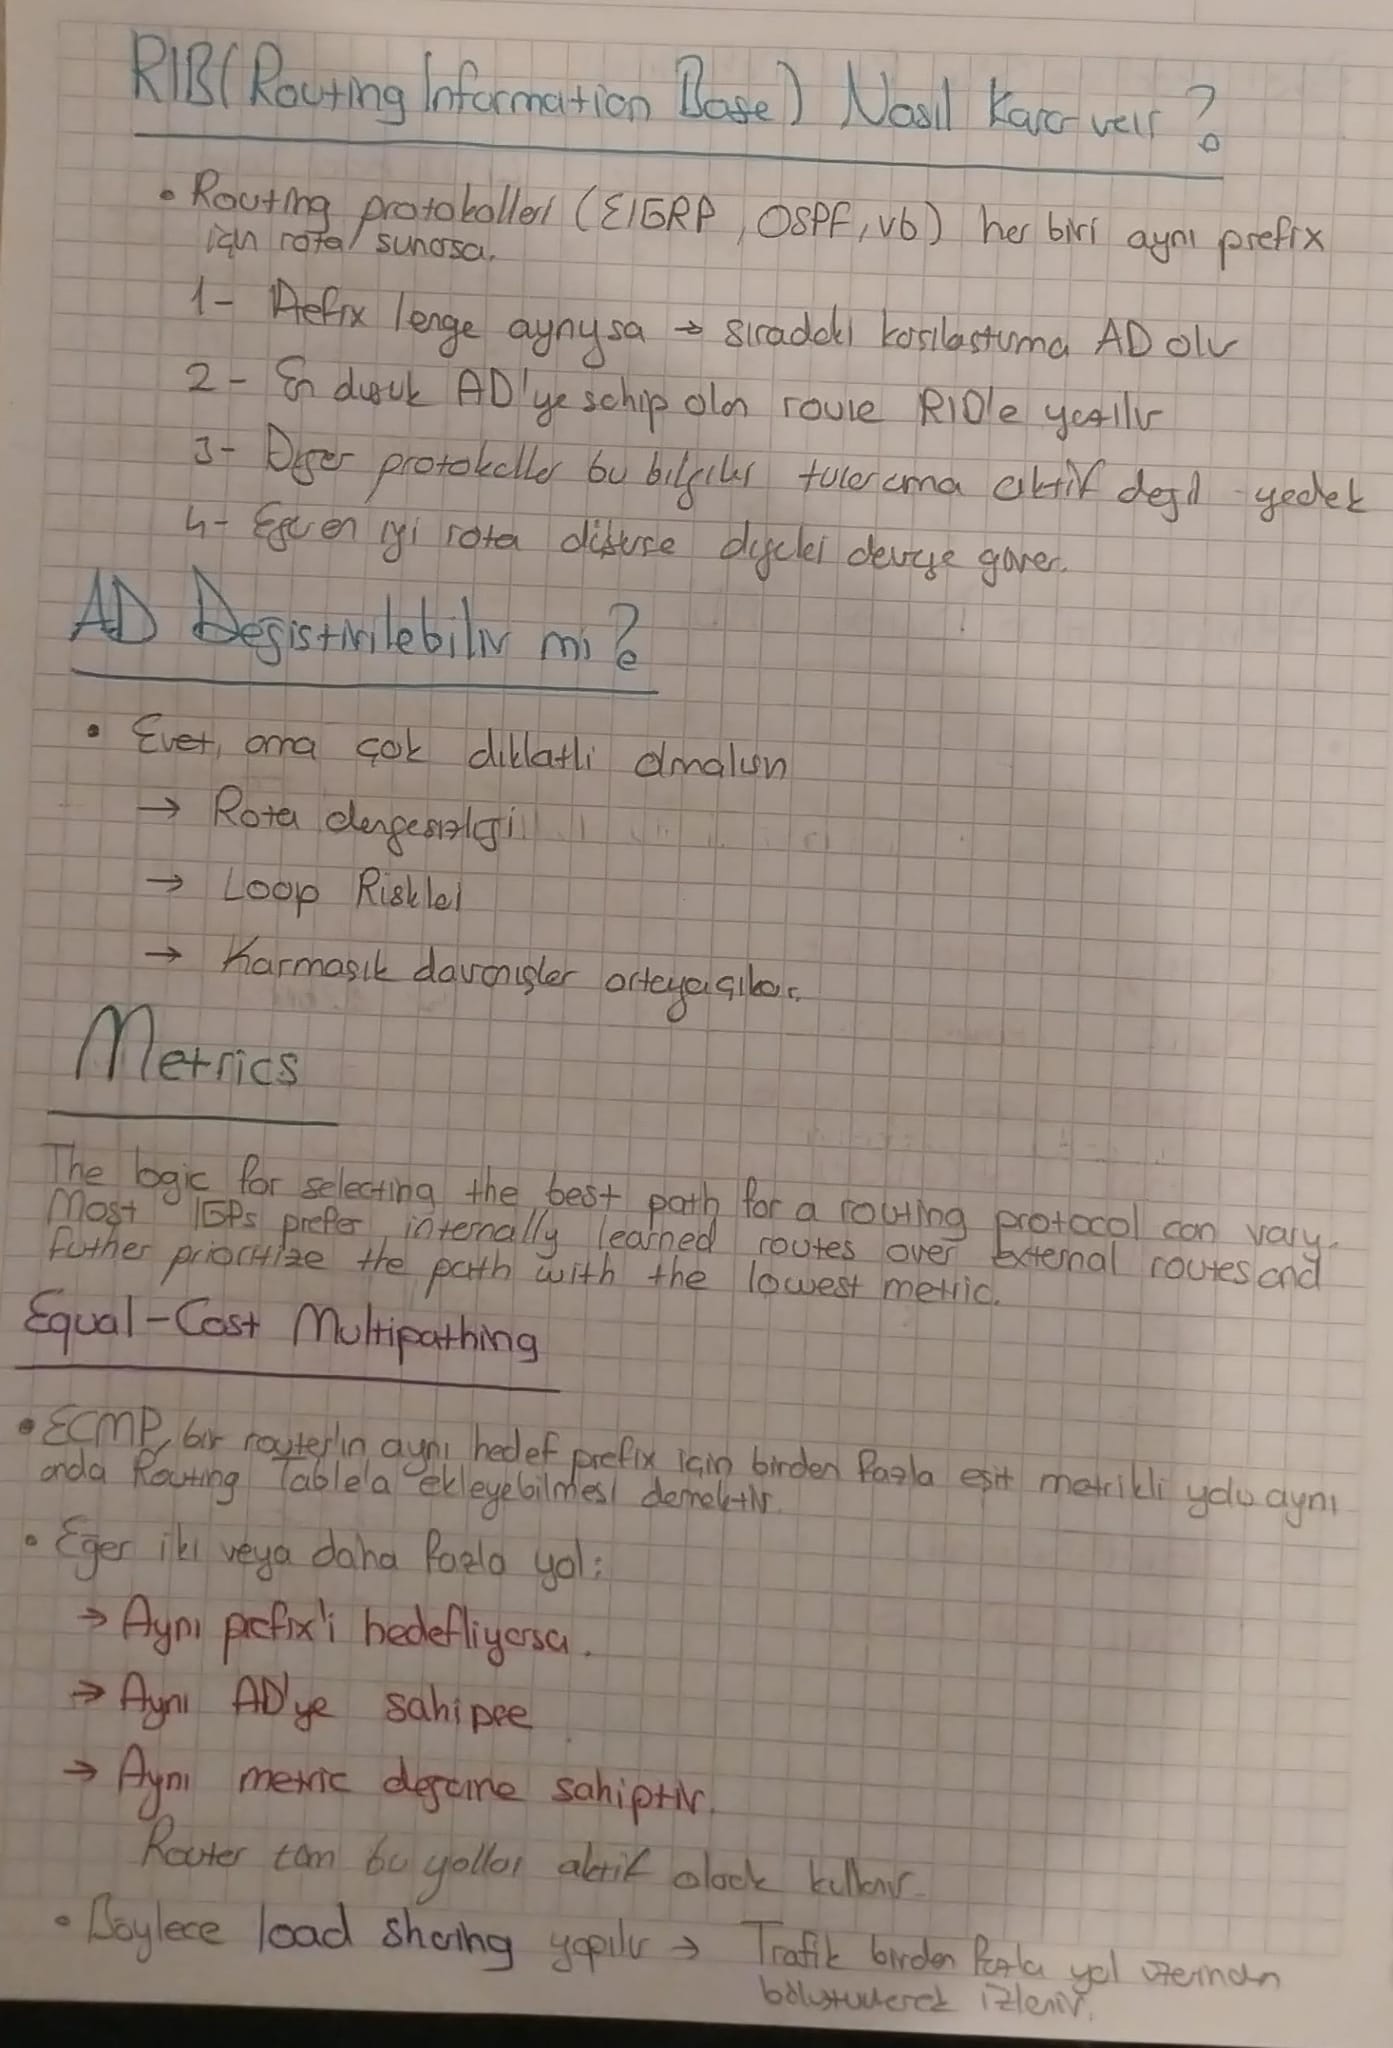 RIB(Routing Information Base) Nasıl Karar verir?
• Routing protokolleri (EIGRP, OSPF, vb) her biri aynı prefix
için rota sunarsa.
1- Prefix lenge aynysa → sıradaki kasılastırma AD olur
2- En düşük AD'ye sahip olan route RIB'e yazılır
3- Diğer protokoller bu bilgileri tutar ama aktif değil - yedek
4- Eğer en iyi rota düşerse diğeri devreye girer.
AD Değistirilebilir mi?
• Evet, ama çok dikkatli olmalısın
→ Rota dengesizliği
→ Loop Riskleri
→ Karmaşık davranışlar ortaya çıkar.
Metrics
The logic for selecting the best path for a routing protocol can vary.
Most IGPs prefer internally learned routes over external routes and
futher prioritize the path with the lowest metric.
Equal-Cost Multipathing
• ECMP, bir router'ın aynı hedef prefix için birden fazla eşit metrikli yolu aynı
anda Routing Table'a ekleyebilmesi demektir.
• Eğer iki veya daha fazla yol:
→ Aynı prefix'i hedefliyorsa.
→ Aynı AD'ye sahipse
→ Aynı metric değerine sahiptir.
Router tüm bu yolları aktif olarak kullanır.
• Böylece load sharing yapılır → Trafik birden fazla yol üzerinden
bölüştürülerek izlenir.